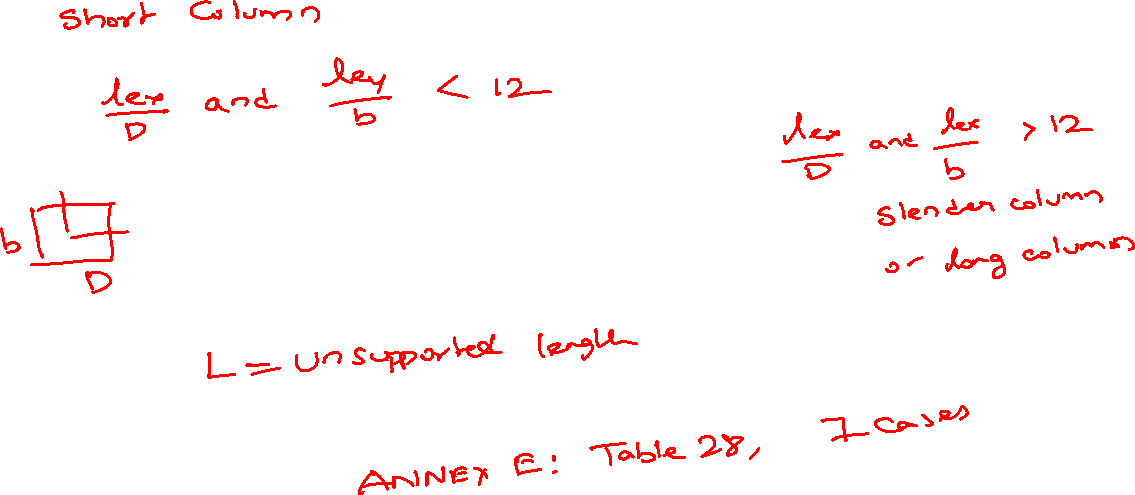 Short Column
lex/D and ley/b < 12
lex/D and lex/b > 12
Slender column
or long column
b
D
L = Unsupported length
ANNEX E: Table 28, 7 Cases